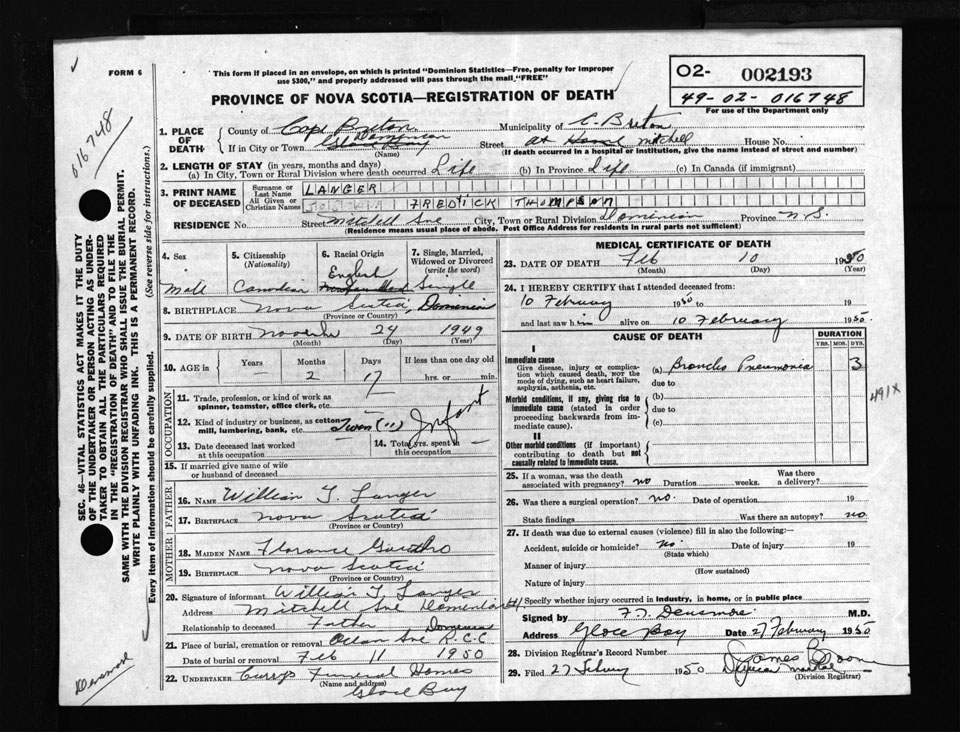 FORM 6
This form if placed in an envelope, on which is printed "Dominion Statistics—Free, penalty for improper
use $300," and properly addressed will pass through the mail "FREE"
PROVINCE OF NOVA SCOTIA—REGISTRATION OF DEATH
O2- 002193
49-02-016748
For use of the Department only
616748
1. PLACE OF DEATH
County of Cape Breton Municipality of C. Breton
If in City or Town Glace Bay Dominion Street at Home Mitchell House No.
(Name) (If death occurred in a hospital or institution, give the name instead of street and number)
2. LENGTH OF STAY (in years, months and days)
(a) In City, Town or Rural Division where death occurred Life (b) In Province Life (c) In Canada (if immigrant)
3. PRINT NAME OF DECEASED
Surname or Last Name LANGER
All Given or Christian Names FREDICK THOMPSON
RESIDENCE No. Street Mitchell Ave City, Town or Rural Division Dominion Province N.S.
(Residence means usual place of abode. Post Office Address for residents in rural parts not sufficient)
4. Sex Male
5. Citizenship (Nationality) Canadian
6. Racial Origin English
7. Single, Married, Widowed or Divorced (write the word) Single
8. BIRTHPLACE Nova Scotia, Dominion
(Province or Country)
9. DATE OF BIRTH November 24 1949
(Month) (Day) (Year)
10. AGE in Years Months Days If less than one day old
2 17 hrs. or min.
OCCUPATION
11. Trade, profession, or kind of work as
spinner, teamster, office clerk, etc.
12. Kind of industry or business, as cotton
mill, lumbering, bank, etc. Twin (11) Infant
13. Date deceased last worked
at this occupation
14. Total yrs. spent in
this occupation —
15. If married give name of wife
or husband of deceased
FATHER
16. NAME William T. Langer
17. BIRTHPLACE Nova Scotia
(Province or Country)
MOTHER
18. MAIDEN NAME Florence
19. BIRTHPLACE Nova Scotia
(Province or Country)
20. Signature of informant William T. Langer
Address Mitchell Ave
Relationship to deceased Father
21. Place of burial, cremation or removal Ocean Ave R.C.C Dominion
Date of burial or removal Feb 11 1950
22. UNDERTAKER Currys Funeral Homes
(Name and address)
Glace Bay
MEDICAL CERTIFICATE OF DEATH
23. DATE OF DEATH Feb 10 1950
(Month) (Day) (Year)
24. I HEREBY CERTIFY that I attended deceased from:
10 February 1950 to 19
and last saw him alive on 10 February 1950.
CAUSE OF DEATH DURATION
YRS. MOS. DYS.
I
Immediate cause
Give disease, injury or complica-
tion which caused death, NOT the
mode of dying, such as heart failure,
asphyxia, asthenia, etc.
(a) Broncho Pneumonia 3
due to
491X
Morbid conditions, if any, giving rise to
immediate cause (stated in order
proceeding backwards from im-
mediate cause).
(b)
due to
(c)
II
Other morbid conditions (if important)
contributing to death but not
causally related to immediate cause.
25. If a woman, was the death
associated with pregnancy? no Duration weeks. Was there
a delivery?
26. Was there a surgical operation? no. Date of operation 19
State findings Was there an autopsy? no.
27. If death was due to external causes (violence) fill in also the following:—
Accident, suicide or homicide? no. Date of injury 19
(State which)
Manner of injury
(How sustained)
Nature of injury
Specify whether injury occurred in industry, in home, or in public place
Signed by F.T. Densmore M.D.
Address Glace Bay Date 27 February 1950
28. Division Registrar's Record Number
29. Filed 27 February 1950
(Division Registrar)
SEC. 46—VITAL STATISTICS ACT MAKES IT THE DUTY
OF THE UNDERTAKER OR PERSON ACTING AS UNDER-
TAKER TO OBTAIN ALL THE PARTICULARS REQUIRED
IN THE "REGISTRATION OF DEATH" AND TO FILE THE
SAME WITH THE DIVISION REGISTRAR WHO SHALL ISSUE THE BURIAL PERMIT.
WRITE PLAINLY WITH UNFADING INK. THIS IS A PERMANENT RECORD.
Every item of information should be carefully supplied. (See reverse side for instructions.)
Densmore